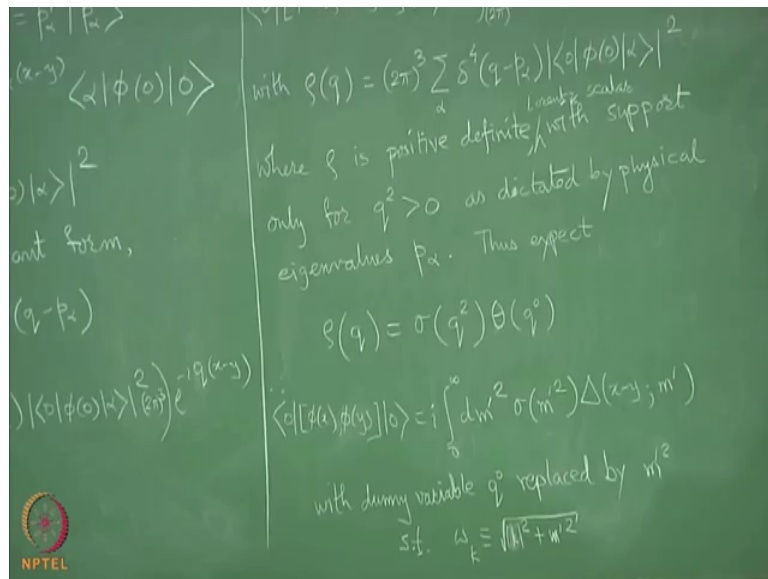 = p'_α |p_α⟩
(x-y) ⟨α|φ(0)|0⟩
0)|α⟩|²
ant form,
(q-p_α)
)|⟨0|φ(0)|α⟩|² (2π)³) e^{-iq(x-y)}
(2π)
with ρ(q) = (2π)³ Σ_α δ⁴(q-p_α)|⟨0|φ(0)|α⟩|²
Lorentz scalar
where ρ is positive definite, with support
only for q² > 0 as dictated by physical
eigenvalues p_α. Thus expect
ρ(q) = σ(q²)θ(q⁰)
∴ ⟨0|[φ(x),φ(y)]|0⟩ = i∫₀^∞ dm'² σ(m'²)Δ(x-y; m')
with dummy variable q⁰ replaced by m'²
s.t. ω_k ≡ √(|k|² + m'²)
NPTEL